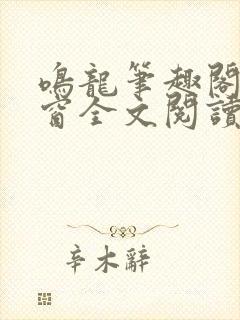 鳴龍筆趣閣
窗全文閱讀
辛木辭